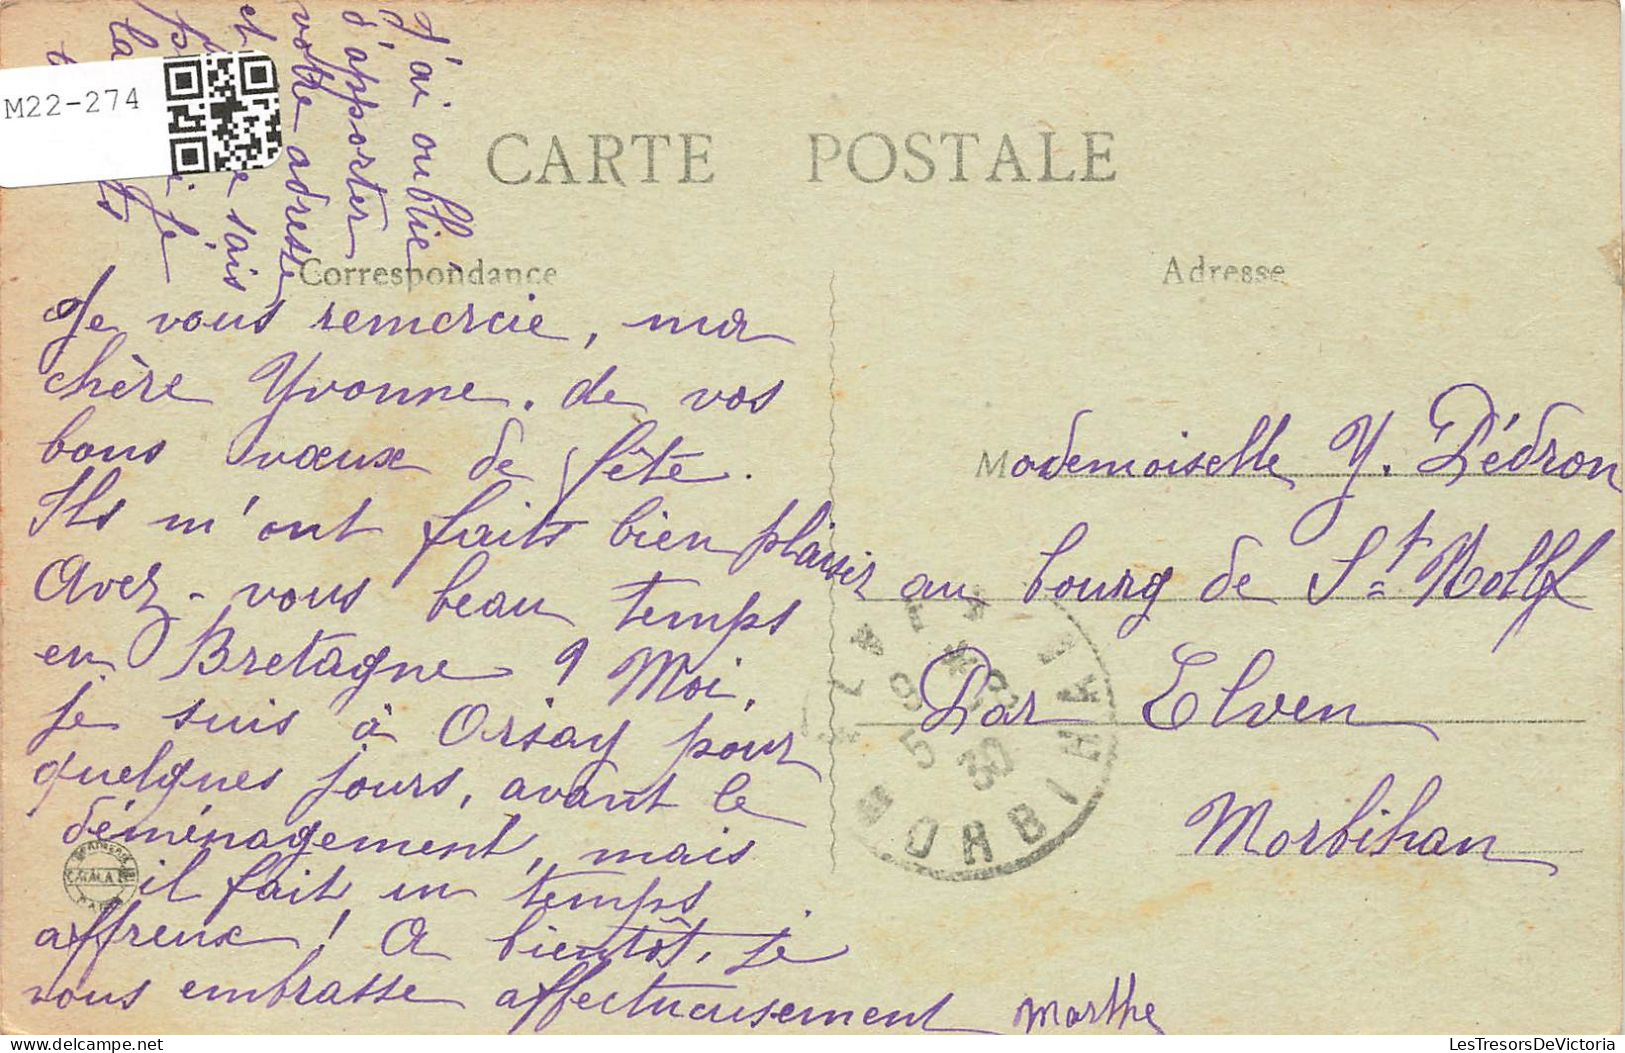 M22-274
J'ai oublié
d'apporter
votre adresse
et
sais
la
CARTE POSTALE
Correspondance
Adresse
Je vous remercie, ma
chère Yvonne. de vos
bons vœux de fête.
Ils m'ont faits bien plaisir
Avez-vous beau temps
en Bretagne ? Moi,
je suis à Orsay pour
quelques jours, avant le
déménagement, mais
il fait un temps
affreux ! A bientôt, je
vous embrasse affectueusement Marthe
Mademoiselle Y. Pédron
au bourg de St Nolff
Par Elven
Morbihan
MORBIHAN
30
LesTresorsDeVictoria
delcampe.net